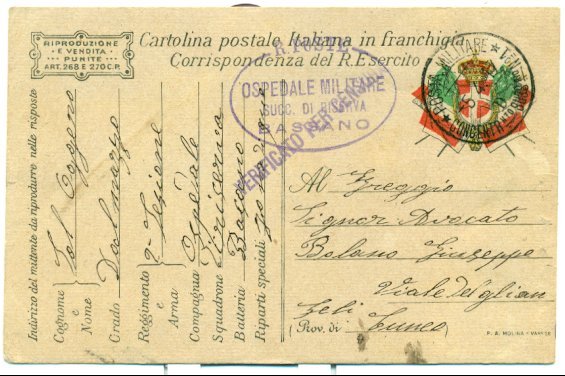 RIPRODUZIONE
E VENDITA
PUNITE
ART. 268 E 270 C.P.
Cartolina postale Italiana in franchigia
Corrispondenza del R. Esercito
R. POSTE
OSPEDALE MILITARE
SUCC. DI RISERVA
BASSANO
VERIFICATO PER
POSTA MILITARE
CONCENTRAMENTO
Indirizzo del mittente da riprodurre nelle risposte
Cognome e Nome
Grado
Reggimento e Arma
2ª Sezione
Compagnia
Ospedale
Squadrone
Riserva
Batteria
Riparti speciali
Al
Signor Avocato
Bolano Giuseppe
Viale
(Prov. di Cuneo
P. A. MOLINA - VARESE